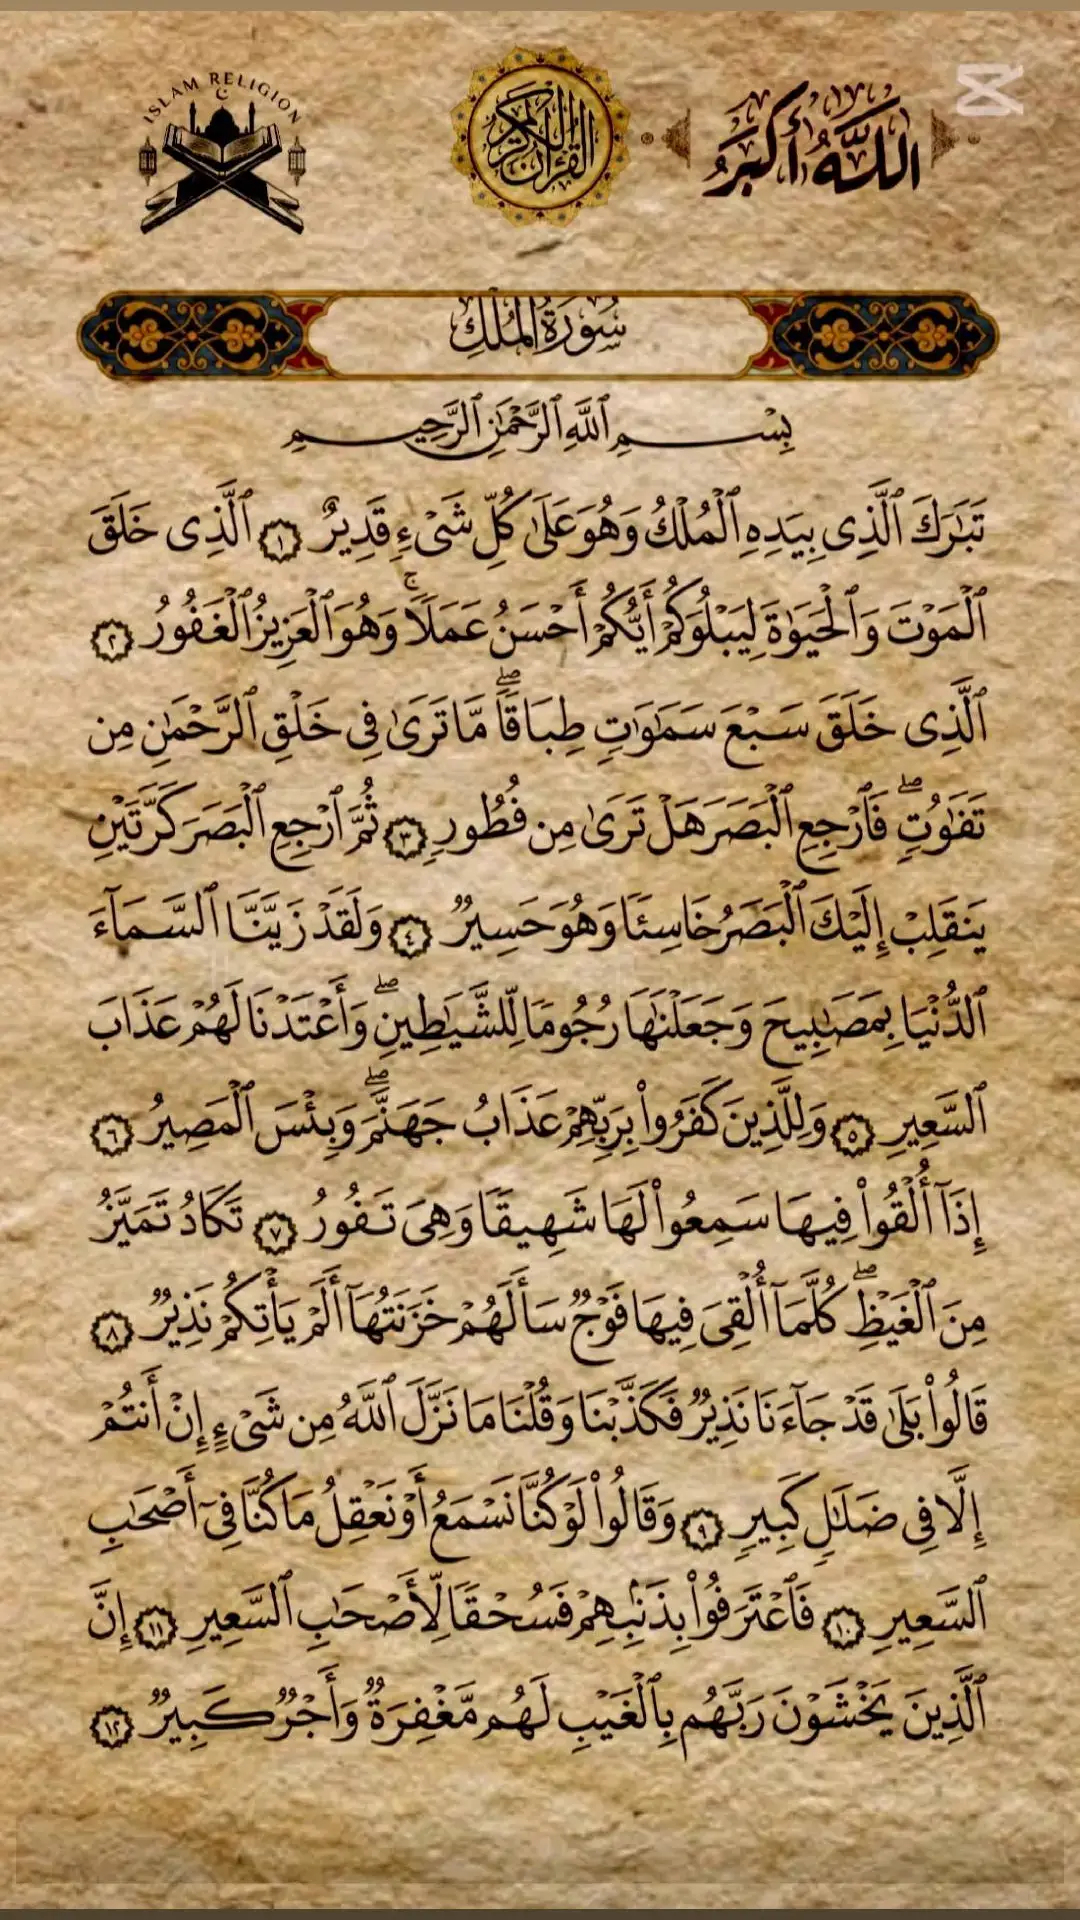 ISLAM RELIGION
القرآن الكريم
اللَّهُ أَكْبَرُ
سُورَةُ الْمُلْكِ
بِسْمِ ٱللَّهِ ٱلرَّحْمَٰنِ ٱلرَّحِيمِ
تَبَٰرَكَ ٱلَّذِى بِيَدِهِ ٱلْمُلْكُ وَهُوَ عَلَىٰ كُلِّ شَىْءٍ قَدِيرٌ ١ ٱلَّذِى خَلَقَ
ٱلْمَوْتَ وَٱلْحَيَوٰةَ لِيَبْلُوَكُمْ أَيُّكُمْ أَحْسَنُ عَمَلًا ۚ وَهُوَ ٱلْعَزِيزُ ٱلْغَفُورُ ٢
ٱلَّذِى خَلَقَ سَبْعَ سَمَٰوَٰتٍ طِبَاقًا ۖ مَّا تَرَىٰ فِى خَلْقِ ٱلرَّحْمَٰنِ مِن
تَفَٰوُتٍ ۖ فَٱرْجِعِ ٱلْبَصَرَ هَلْ تَرَىٰ مِن فُطُورٍ ٣ ثُمَّ ٱرْجِعِ ٱلْبَصَرَ كَرَّتَيْنِ
يَنقَلِبْ إِلَيْكَ ٱلْبَصَرُ خَاسِئًا وَهُوَ حَسِيرٌ ٤ وَلَقَدْ زَيَّنَّا ٱلسَّمَآءَ
ٱلدُّنْيَا بِمَصَٰبِيحَ وَجَعَلْنَٰهَا رُجُومًا لِّلشَّيَٰطِينِ ۖ وَأَعْتَدْنَا لَهُمْ عَذَابَ
ٱلسَّعِيرِ ٥ وَلِلَّذِينَ كَفَرُوا۟ بِرَبِّهِمْ عَذَابُ جَهَنَّمَ ۖ وَبِئْسَ ٱلْمَصِيرُ ٦
إِذَآ أُلْقُوا۟ فِيهَا سَمِعُوا۟ لَهَا شَهِيقًا وَهِىَ تَفُورُ ٧ تَكَادُ تَمَيَّزُ
مِنَ ٱلْغَيْظِ ۖ كُلَّمَآ أُلْقِىَ فِيهَا فَوْجٌ سَأَلَهُمْ خَزَنَتُهَآ أَلَمْ يَأْتِكُمْ نَذِيرٌ ٨
قَالُوا۟ بَلَىٰ قَدْ جَآءَنَا نَذِيرٌ فَكَذَّبْنَا وَقُلْنَا مَا نَزَّلَ ٱللَّهُ مِن شَىْءٍ إِنْ أَنتُمْ
إِلَّا فِى ضَلَٰلٍ كَبِيرٍ ٩ وَقَالُوا۟ لَوْ كُنَّا نَسْمَعُ أَوْ نَعْقِلُ مَا كُنَّا فِىٓ أَصْحَٰبِ
ٱلسَّعِيرِ ١٠ فَٱعْتَرَفُوا۟ بِذَنۢبِهِمْ فَسُحْقًا لِّأَصْحَٰبِ ٱلسَّعِيرِ ١١ إِنَّ
ٱلَّذِينَ يَخْشَوْنَ رَبَّهُم بِٱلْغَيْبِ لَهُم مَّغْفِرَةٌ وَأَجْرٌ كَبِيرٌ ١٢